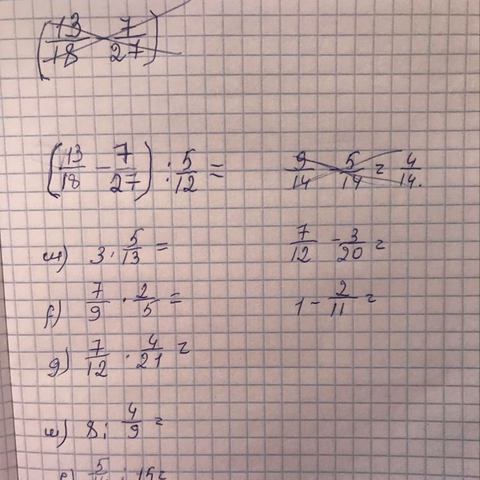 (13/18 7/27)
(13/18 - 7/27) : 5/12 =
9/14 5/14 = 4/14.
м) 3 · 5/13 =
7/12 - 3/20 =
f) 7/9 · 2/5 =
1 - 2/11 =
g) 7/12 · 4/21 =
м) 8 : 4/9 =
: 15 =